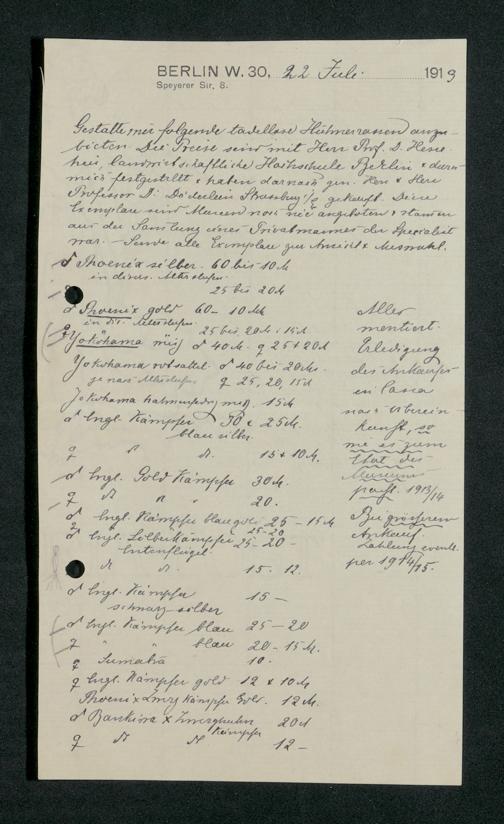 BERLIN W. 30, 22 Juli 1913
Speyerer Str. 8.
Gestatte mir folgende tadellose Hühnerrassen anzu-
bieten. Die Preise sind mit Herrn Prof. D.
landwirtschaftliche Hochschule Berlin
festgestellt & haben darnach gen. Herr & Herr
Professor Dr. Döderlein Strassburg i/E gekauft. Diese
Exemplare sind Museen noch nie angeboten & stammen
aus der Samlung eines Privatmannes der Spezialist
war. - Sende alle Exemplare zur Ansicht & Auswahl.
♂ Phoenix silber. 60 bis 10 M
in divers. Altersstufen.
25 bis 20 M
♂ Phoenix gold 60 - 10 M
in div. Altersstufen.
♀ 25 bis 20 M. 15 M
Yokohama ♂ 40 M. ♀ 25 & 20 M
Yokohama rotsattel ♂ 40 bis 20 M.
je nach Altersstufen ♀ 25, 20, 15 M
Yokohama hahnenfedrig 15 M
♂ Engl. Kämpfer 30 & 25 M.
blau silber.
♀ " " 15 & 10 M.
♂ Engl. Gold Kämpfer 30 M.
♀ " " " 20.
♂ Engl. Kämpfer blaugold 25 - 15 M
♀ 25-20
♂ Engl. Silberkämpfer 25 - 20 -
Entenflügel
" " 15. 12.
♂ Engl. Kämpfer 15 -
schwarz-silber
♂ Engl. Kämpfer blau 25 - 20
♀ " " blau 20 - 15 M.
♀ Sumatra 10.
♀ Engl. Kämpfer gold 12 & 10 M
Phoenix Zwerg Kämpfer Gold. 12 M.
♂ Bankiva x Zwerghuhn 20 M
Kämpfer
♀ " " 12 -
Alles
mentiert.
Erledigung
des Ankaufes
in Casa
nach Überein-
kunft, so
wie es zum
Etat des
Museums
passt. 1913/14
Bei grösserem
Ankauf.
Zahlung event.
per 1914/15.